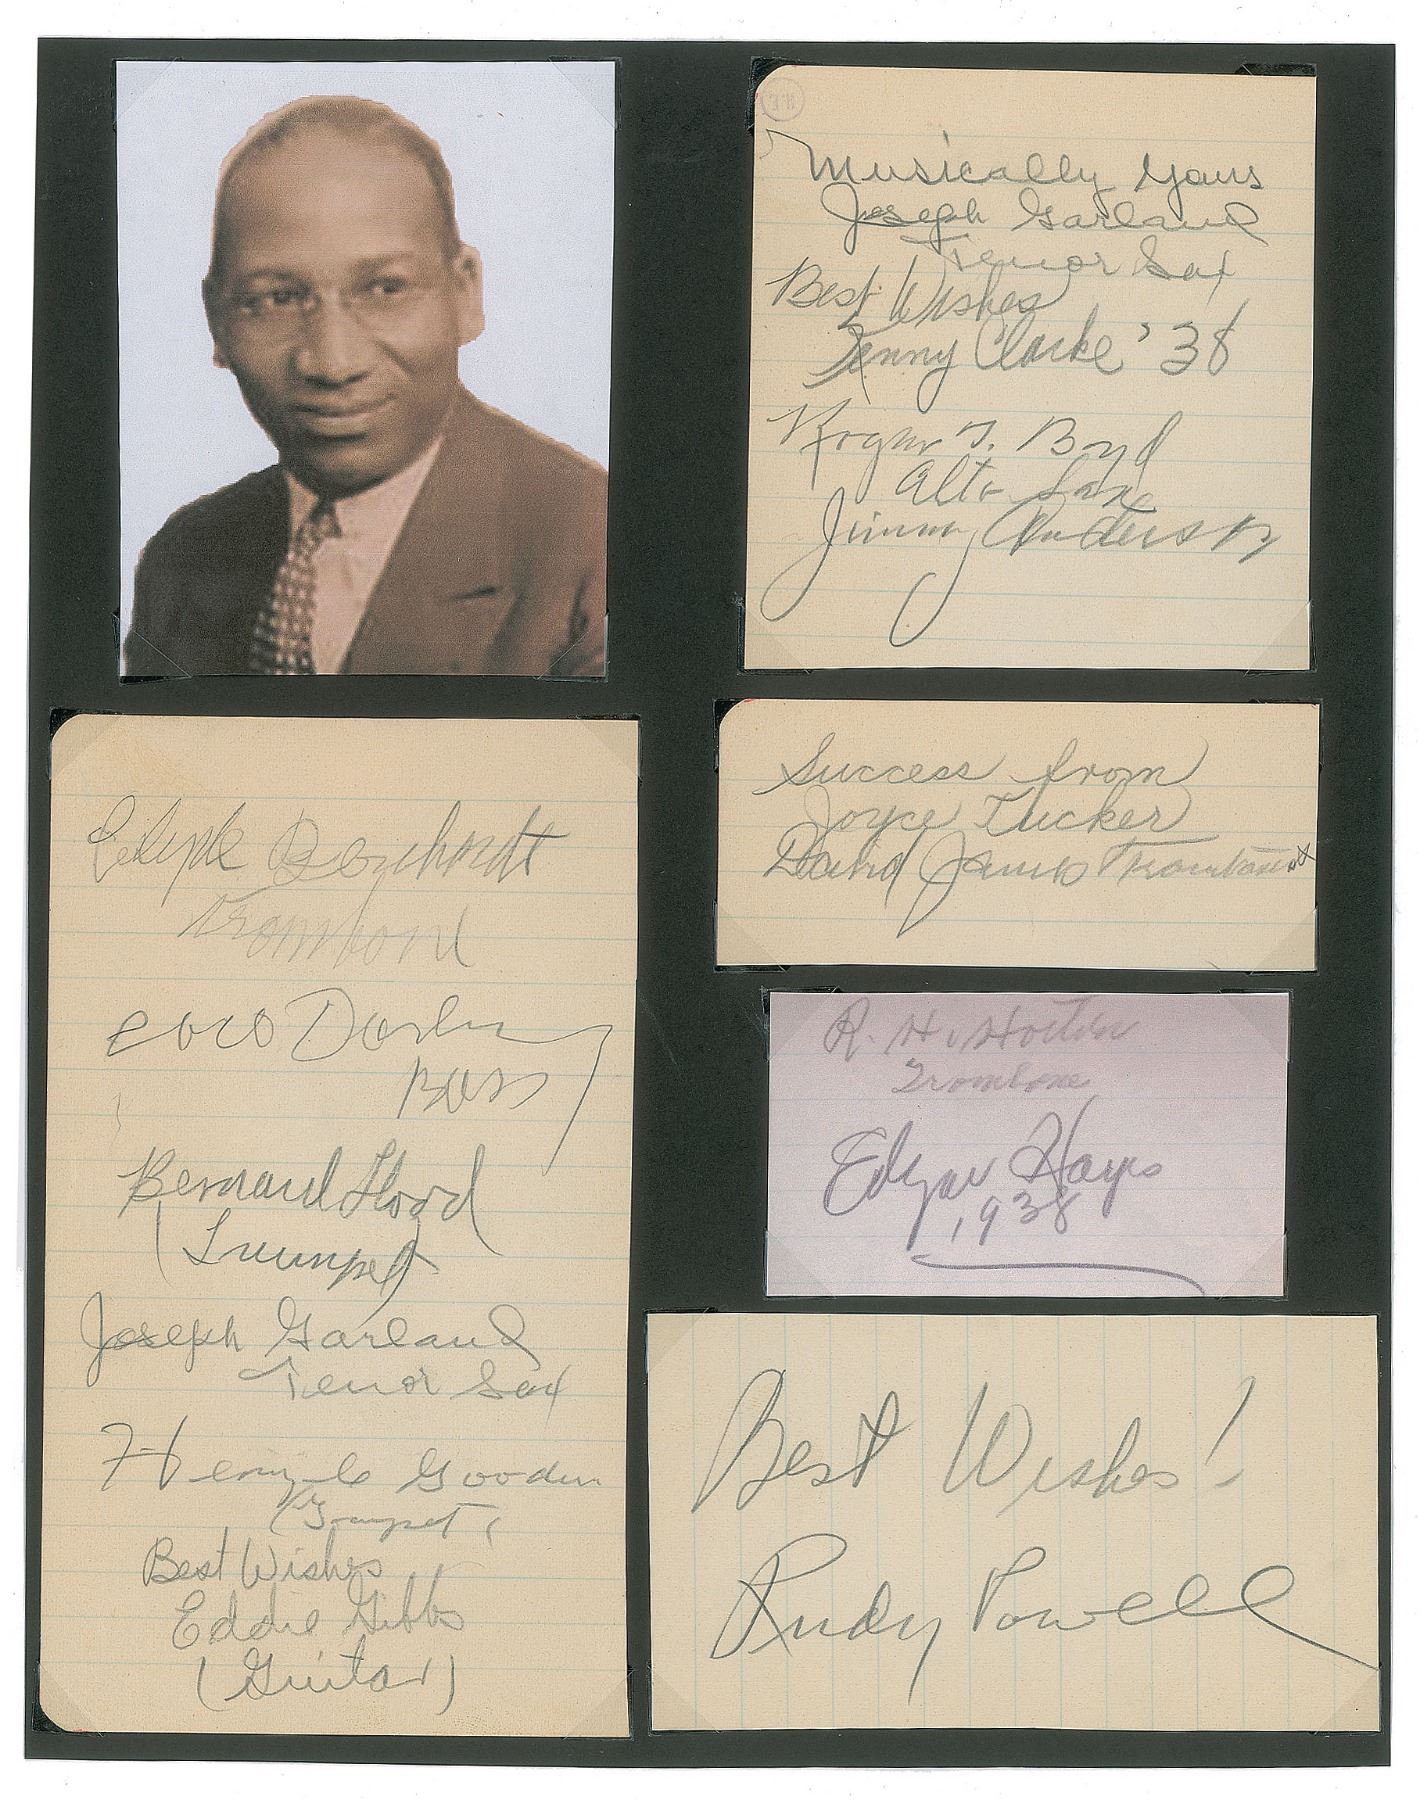 Musically Yours
Joseph Garland
Tenor Sax
Best Wishes
Kenny Clarke '38
Roger T. Boyd
Alto Saxe
Jimmy Anderson
Success from
Joyce Tucker
David James Trombonist
R. H. Horton
Trombone
Edgar Hayes
1938
Best Wishes!
Rudy Powell
Clyde Bernhardt
Trombone
Coco Darling
Bass
Bernard Flood
(Trumpet)
Joseph Garland
Tenor Sax
Gooden
(Trumpet)
Best Wishes
Eddie Gibbs
(Guitar)